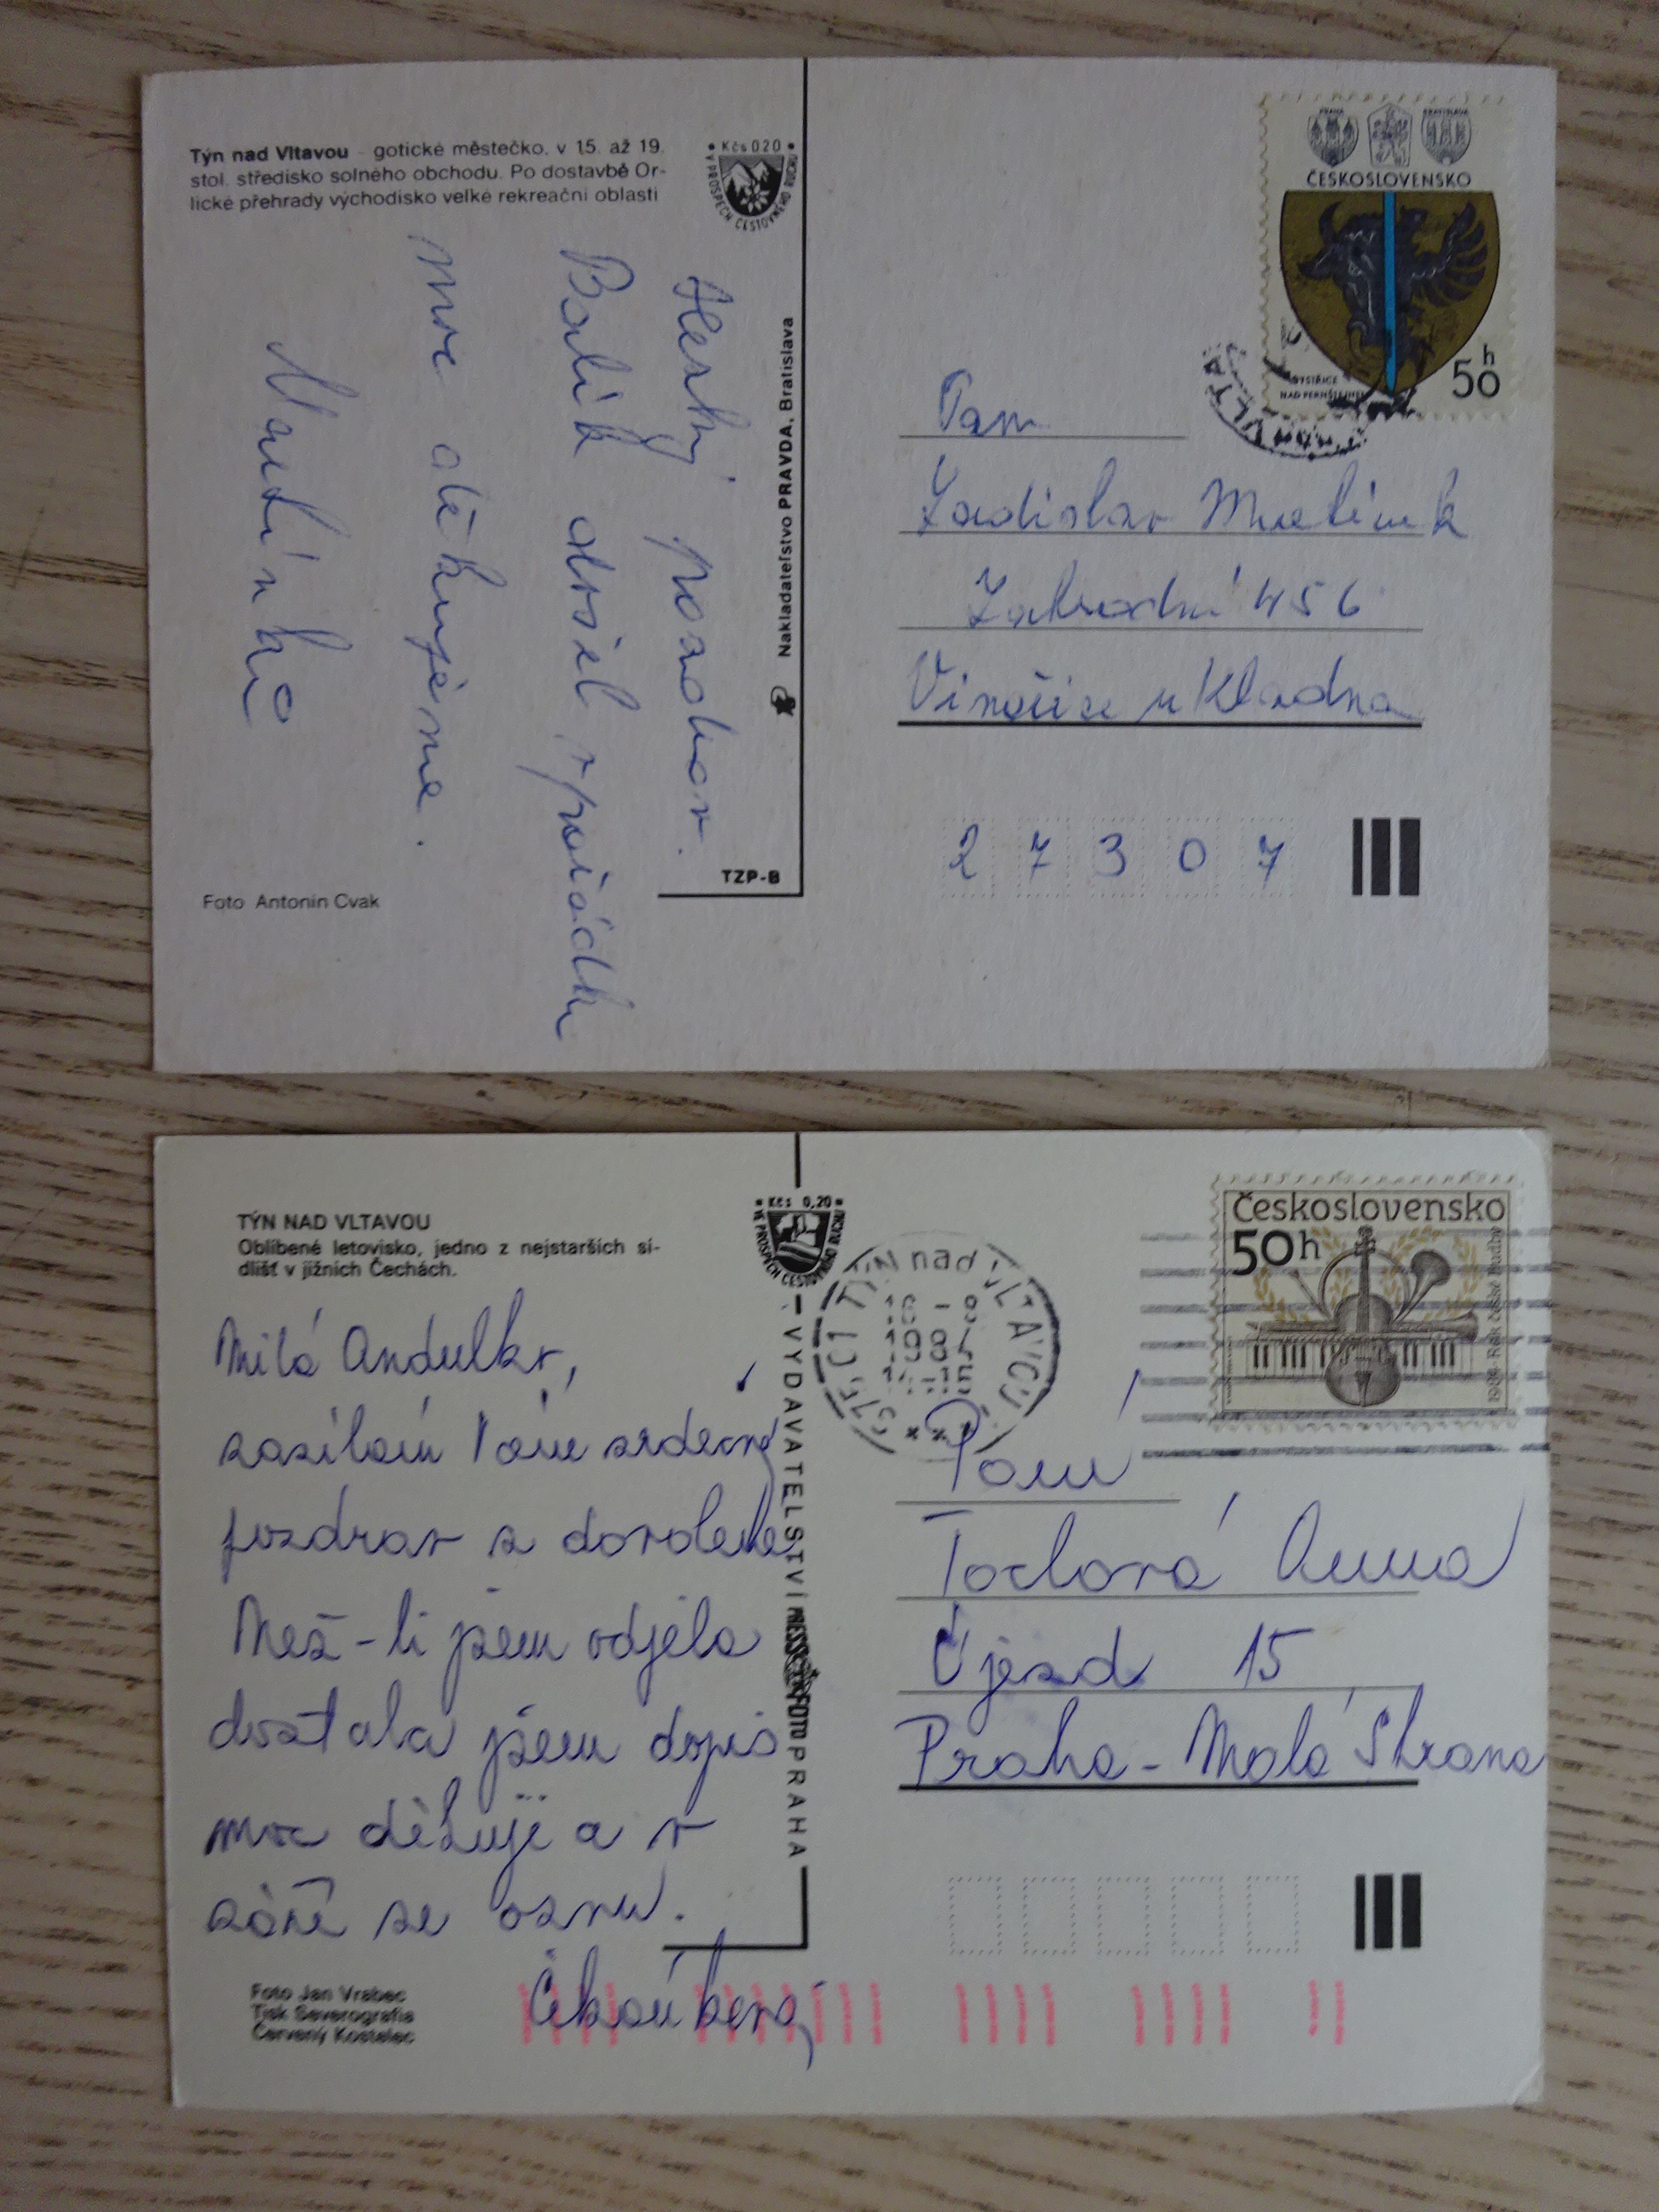 Týn nad Vltavou - gotické městečko, v 15. až 19.
stol. středisko solného obchodu. Po dostavbě Or-
lické přehrady východisko velké rekreační oblasti
• Kčs 0,20 •
V PROSPĚCH CESTOVNÉHO RUCHU
Hezký pozdrav.
Balík došel v pořádku
moc děkujeme.
Foto Antonín Cvak
Nakladateľstvo PRAVDA, Bratislava
TZP-B
PRAHA
BRATISLAVA
ČESKOSLOVENSKO
BYSTŘICE
NAD PERNŠTEJNEM
50 h
Pan
Ladislav
Zahradní 456
Vinařice u Kladna
2 7 3 0 7
TÝN NAD VLTAVOU
Oblíbené letovisko, jedno z nejstarších sí-
dlišť v jižních Čechách.
• Kčs 0,20 •
VE PROSPĚCH CESTOVNÍHO RUCHU
Milá Andulko,
zasílám Vám srdečný
pozdrav z dovolené
Než-li jsem odjela
dostala jsem dopis
moc děkuji a v
září se ozvu.
Foto Jan Vrabec
Tisk Severografia
Červený Kostelec
VYDAVATELSTVÍ PRESSFOTO PRAHA
TÝN nad VLTAVOU
Československo
50h
Paní
Anna
Újezd 15
Praha - Malá Strana